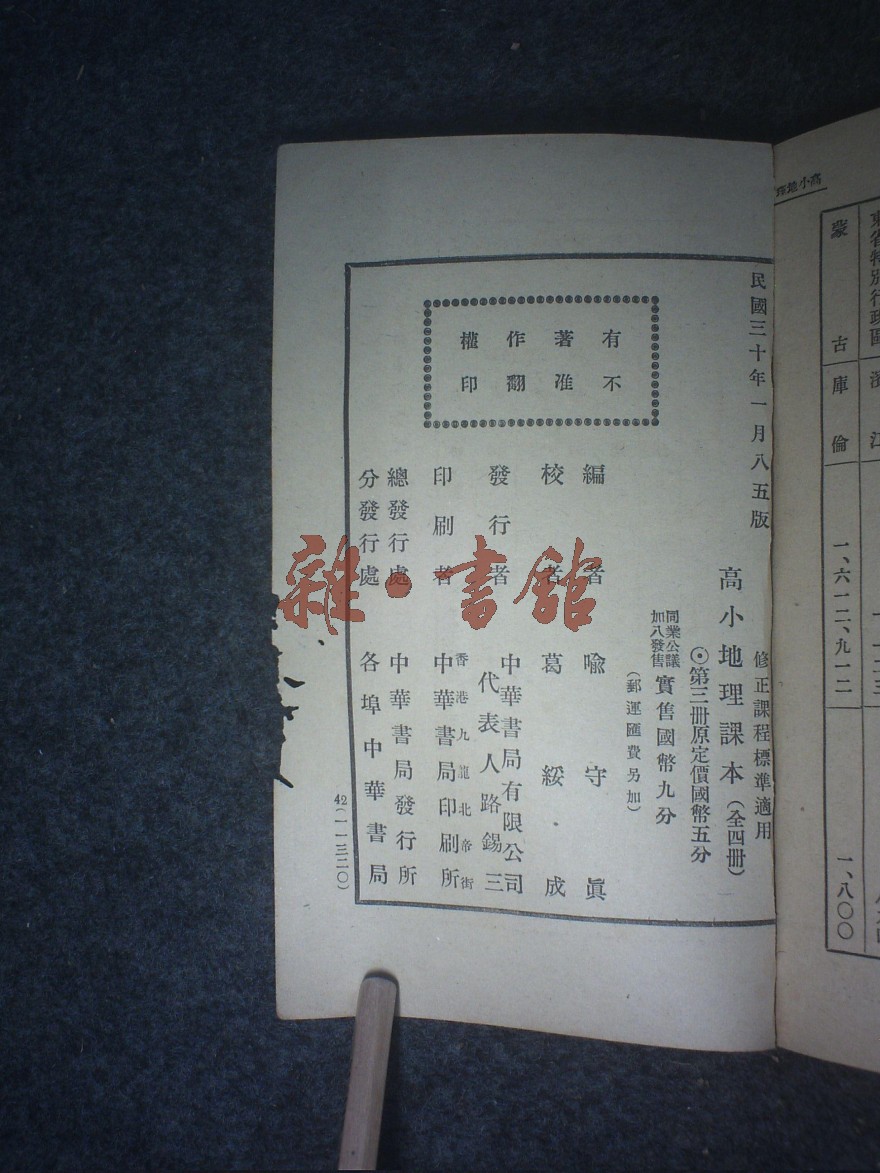 民國三十年一月八五版
修正課程標準適用
高小地理課本（全四冊）
⊙第三冊原定價國幣五分
同業公議
加八發售
實售國幣九分
（郵運匯費另加）
有著作權
不准翻印
編者 喩守眞
校者 葛綏成
發行者 中華書局有限公司
代表人路錫三
印刷者 香港九龍北帝街
中華書局印刷所
總發行處 中華書局發行所
分發行處 各埠中華書局
42(一一三二〇)
雜·書館
高小地理
東省特別行政區
濱江
蒙古
庫倫
一、六一二、九一二
一、八〇〇